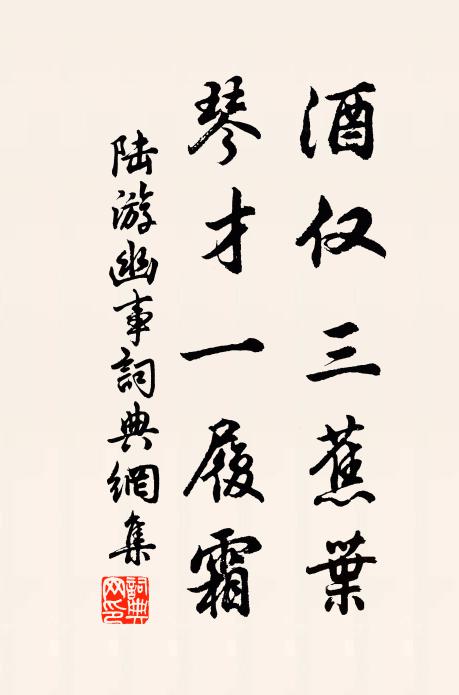 酒仅三蕉葉
琴才一履霜
陆游幽事詞典網集
詞典网印